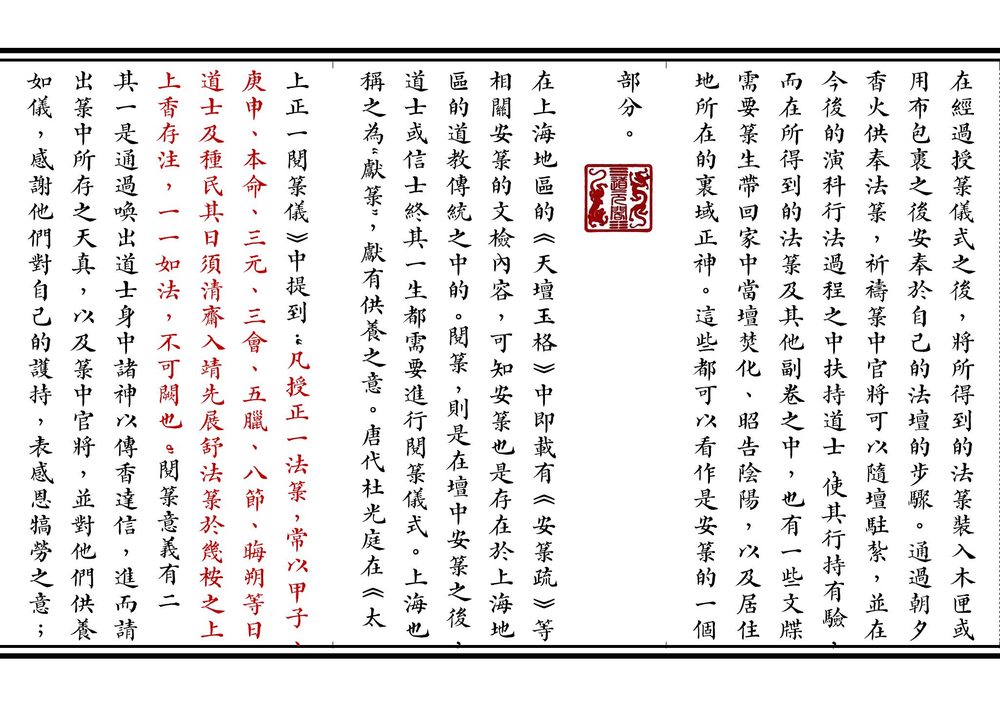 在經過授箓儀式之後，將所得到的法箓裝入木匣或
用布包裹之後安奉於自己的法壇的步驟。通過朝夕
香火供奉法箓，祈禱箓中官將可以隨壇駐紮，並在
今後的演科行法過程之中扶持道士，使其行持有驗，
而在所得到的法箓及其他副卷之中，也有一些文牒
需要箓生帶回家中當壇焚化、昭告陰陽，以及居住
地所在的裏域正神。這些都可以看作是安箓的一個
部分。
在上海地區的《天壇玉格》中即載有《安箓疏》等
相關安箓的文檢內容，可知安箓也是存在於上海地
區的道教傳統之中的。閱箓，則是在壇中安箓之後，
道士或信士終其一生都需要進行閱箓儀式。上海也
稱之為“獻箓”，獻有供養之意。唐代杜光庭在《太
上正一閱箓儀》中提到：“凡授正一法箓，常以甲子、
庚申、本命、三元、三會、五臘、八節、晦朔等日
道士及種民其日須清齋入靖先展舒法箓於幾桉之上
上香存注，一一如法，不可闕也。”閱箓意義有二
其一是通過喚出道士身中諸神以傳香達信，進而請
出箓中所存之天真，以及箓中官將，並對他們供養
如儀，感謝他們對自己的護持，表感恩犒勞之意；